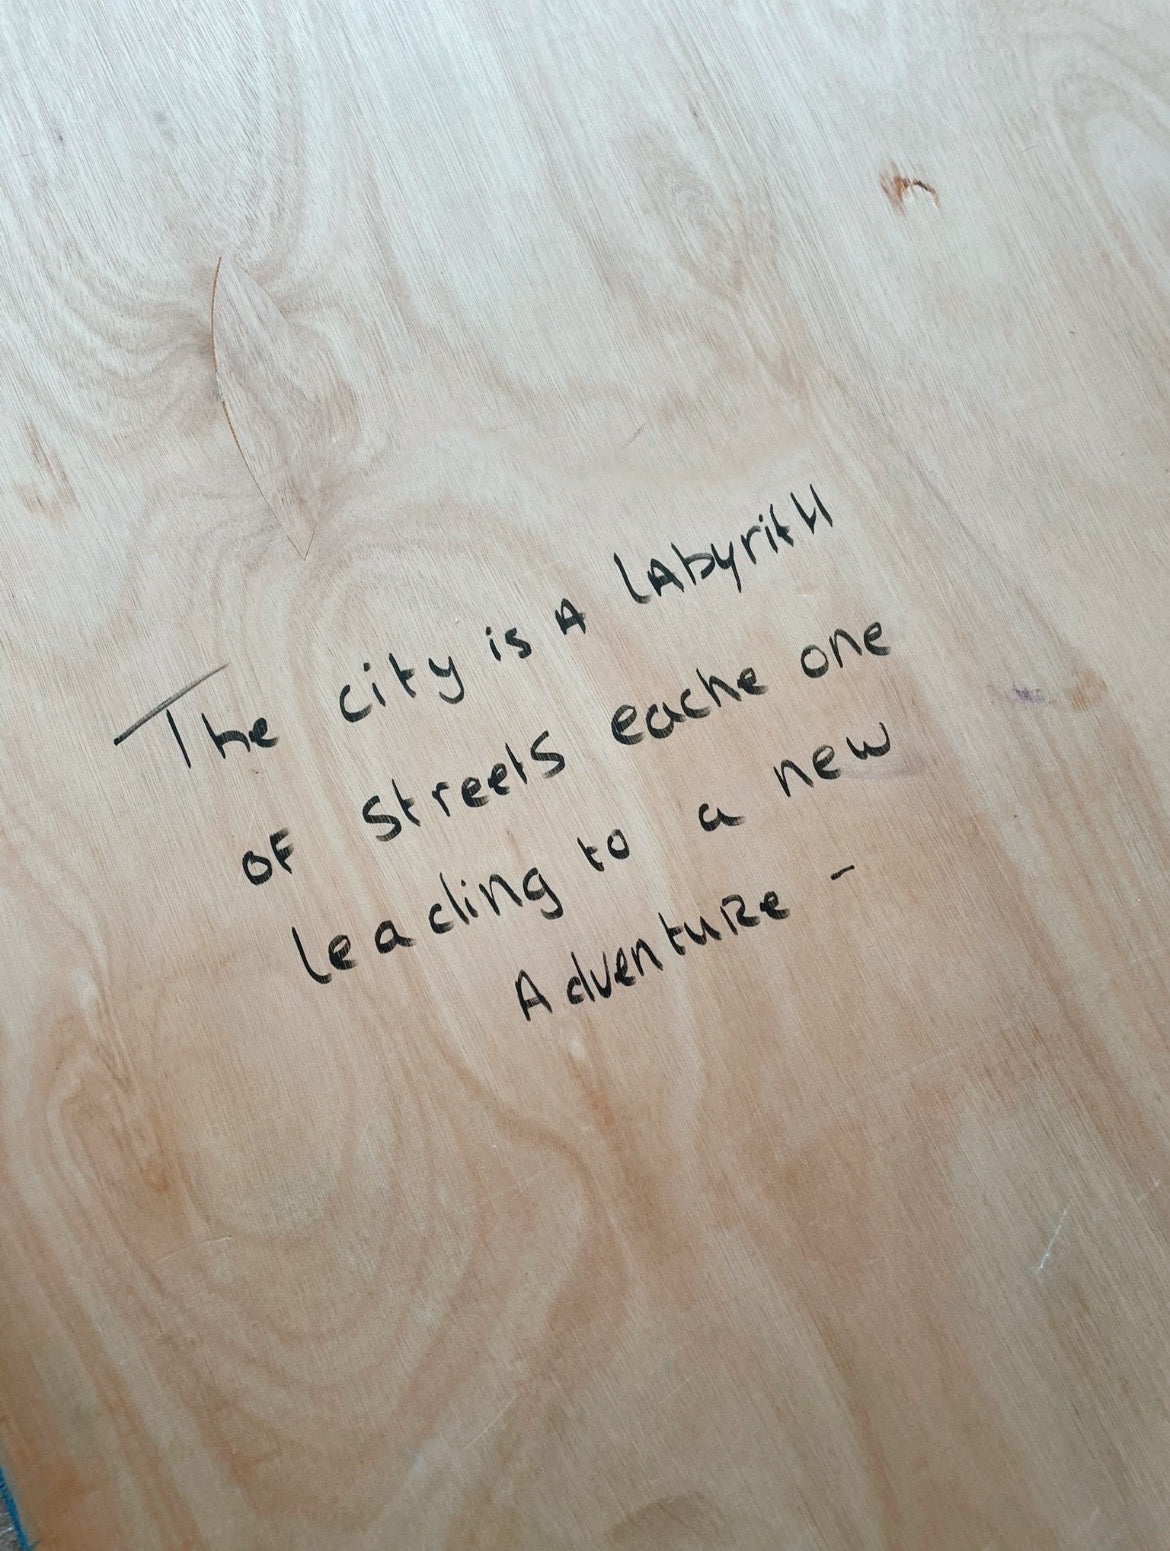 The city is A LAbyritH
OF StreetS eache one
leading to a new
AdventuRe -